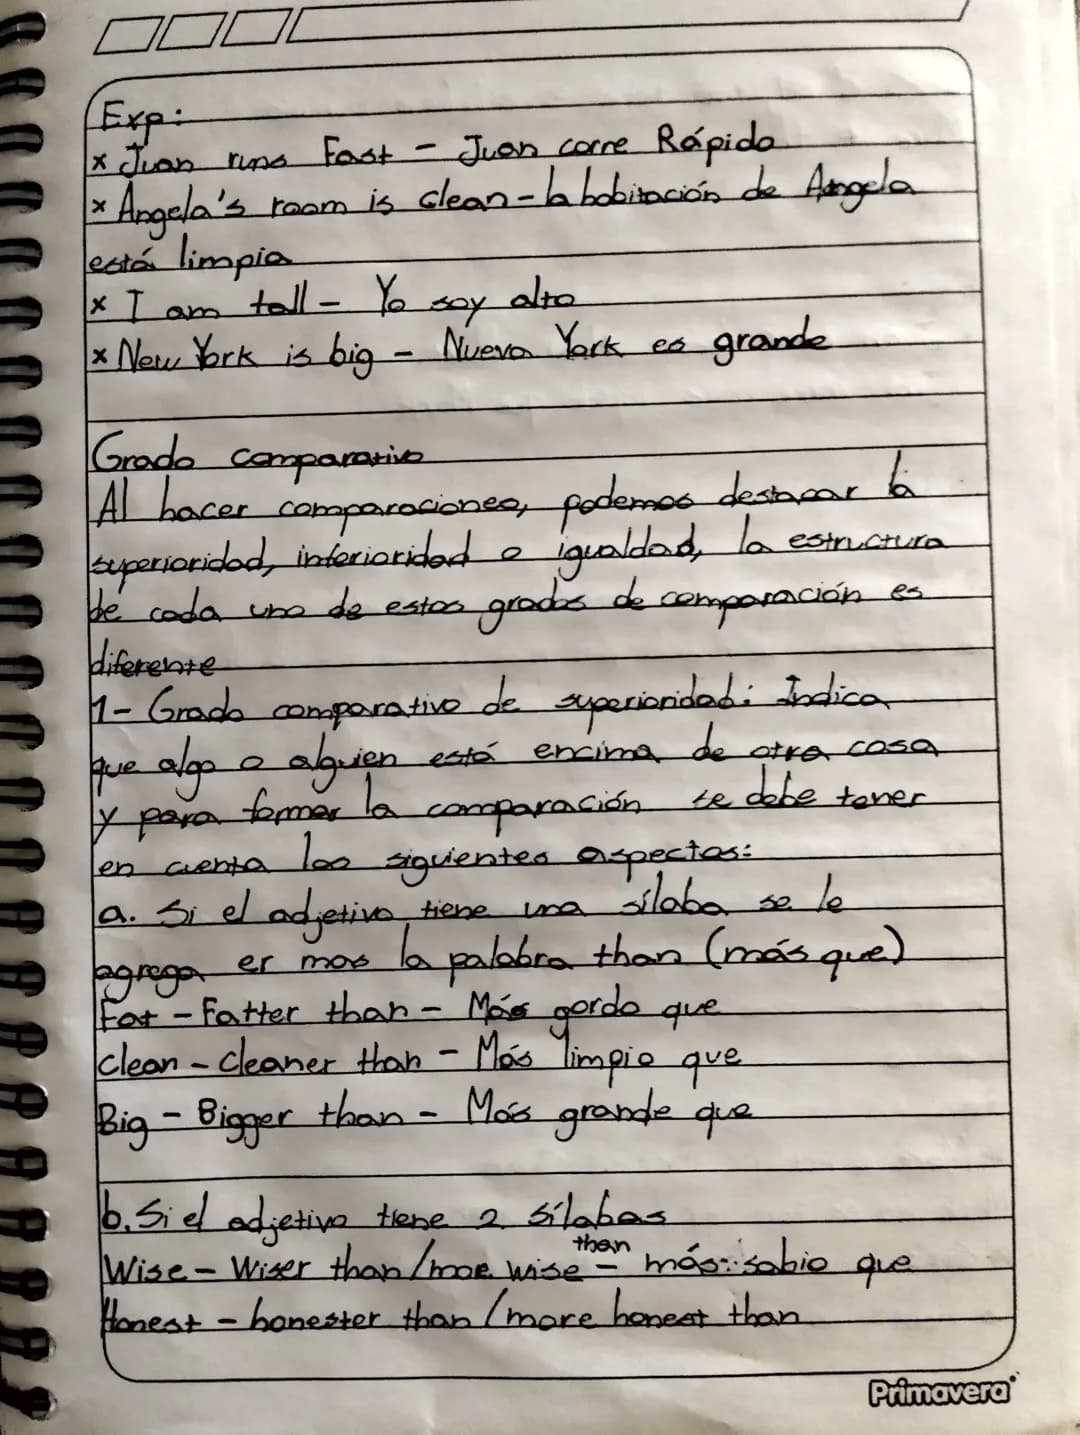 Exp:
x Juan runs Fast - Juan corre Rápido
x Angela's room is clean - la habitación de Angela
está limpia
x I am tall - Yo soy alto
x New York is big - Nueva York es grande
Grado comparativo
Al hacer comparaciones, podemos destacar la
superioridad, inferioridad o igualdad, la estructura
de cada uno de estos grados de comparación es
diferente
1- Grado comparativo de superioridad: Indica
que algo o alguien está encima de otra cosa
y para formar la comparación se debe tener
en cuenta los siguientes aspectos:
a. Si el adjetivo tiene una sílaba se le
agrega er mas la palabra than (más que)
Fat - Fatter than - Más gordo que
Clean - Cleaner than - Más limpio que
Big - Bigger than - Más grande que
b. Si el adjetivo tiene 2 sílabas
Wise - Wiser than / moe wise than - más sabio que
Honest - honester than / more honest than
Primavera